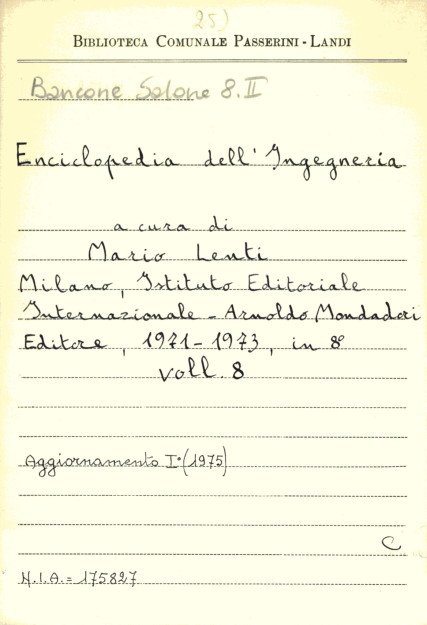 25)
BIBLIOTECA COMUNALE PASSERINI - LANDI
Bancone Salone 8.II
Enciclopedia dell'Ingegneria
a cura di
Mario Lenti
Milano, Istituto Editoriale
Internazionale - Arnoldo Mondadori
Editore, 1971-1973, in 8°
voll. 8
Aggiornamento I° (1975)
C
N.I.A. = 175827